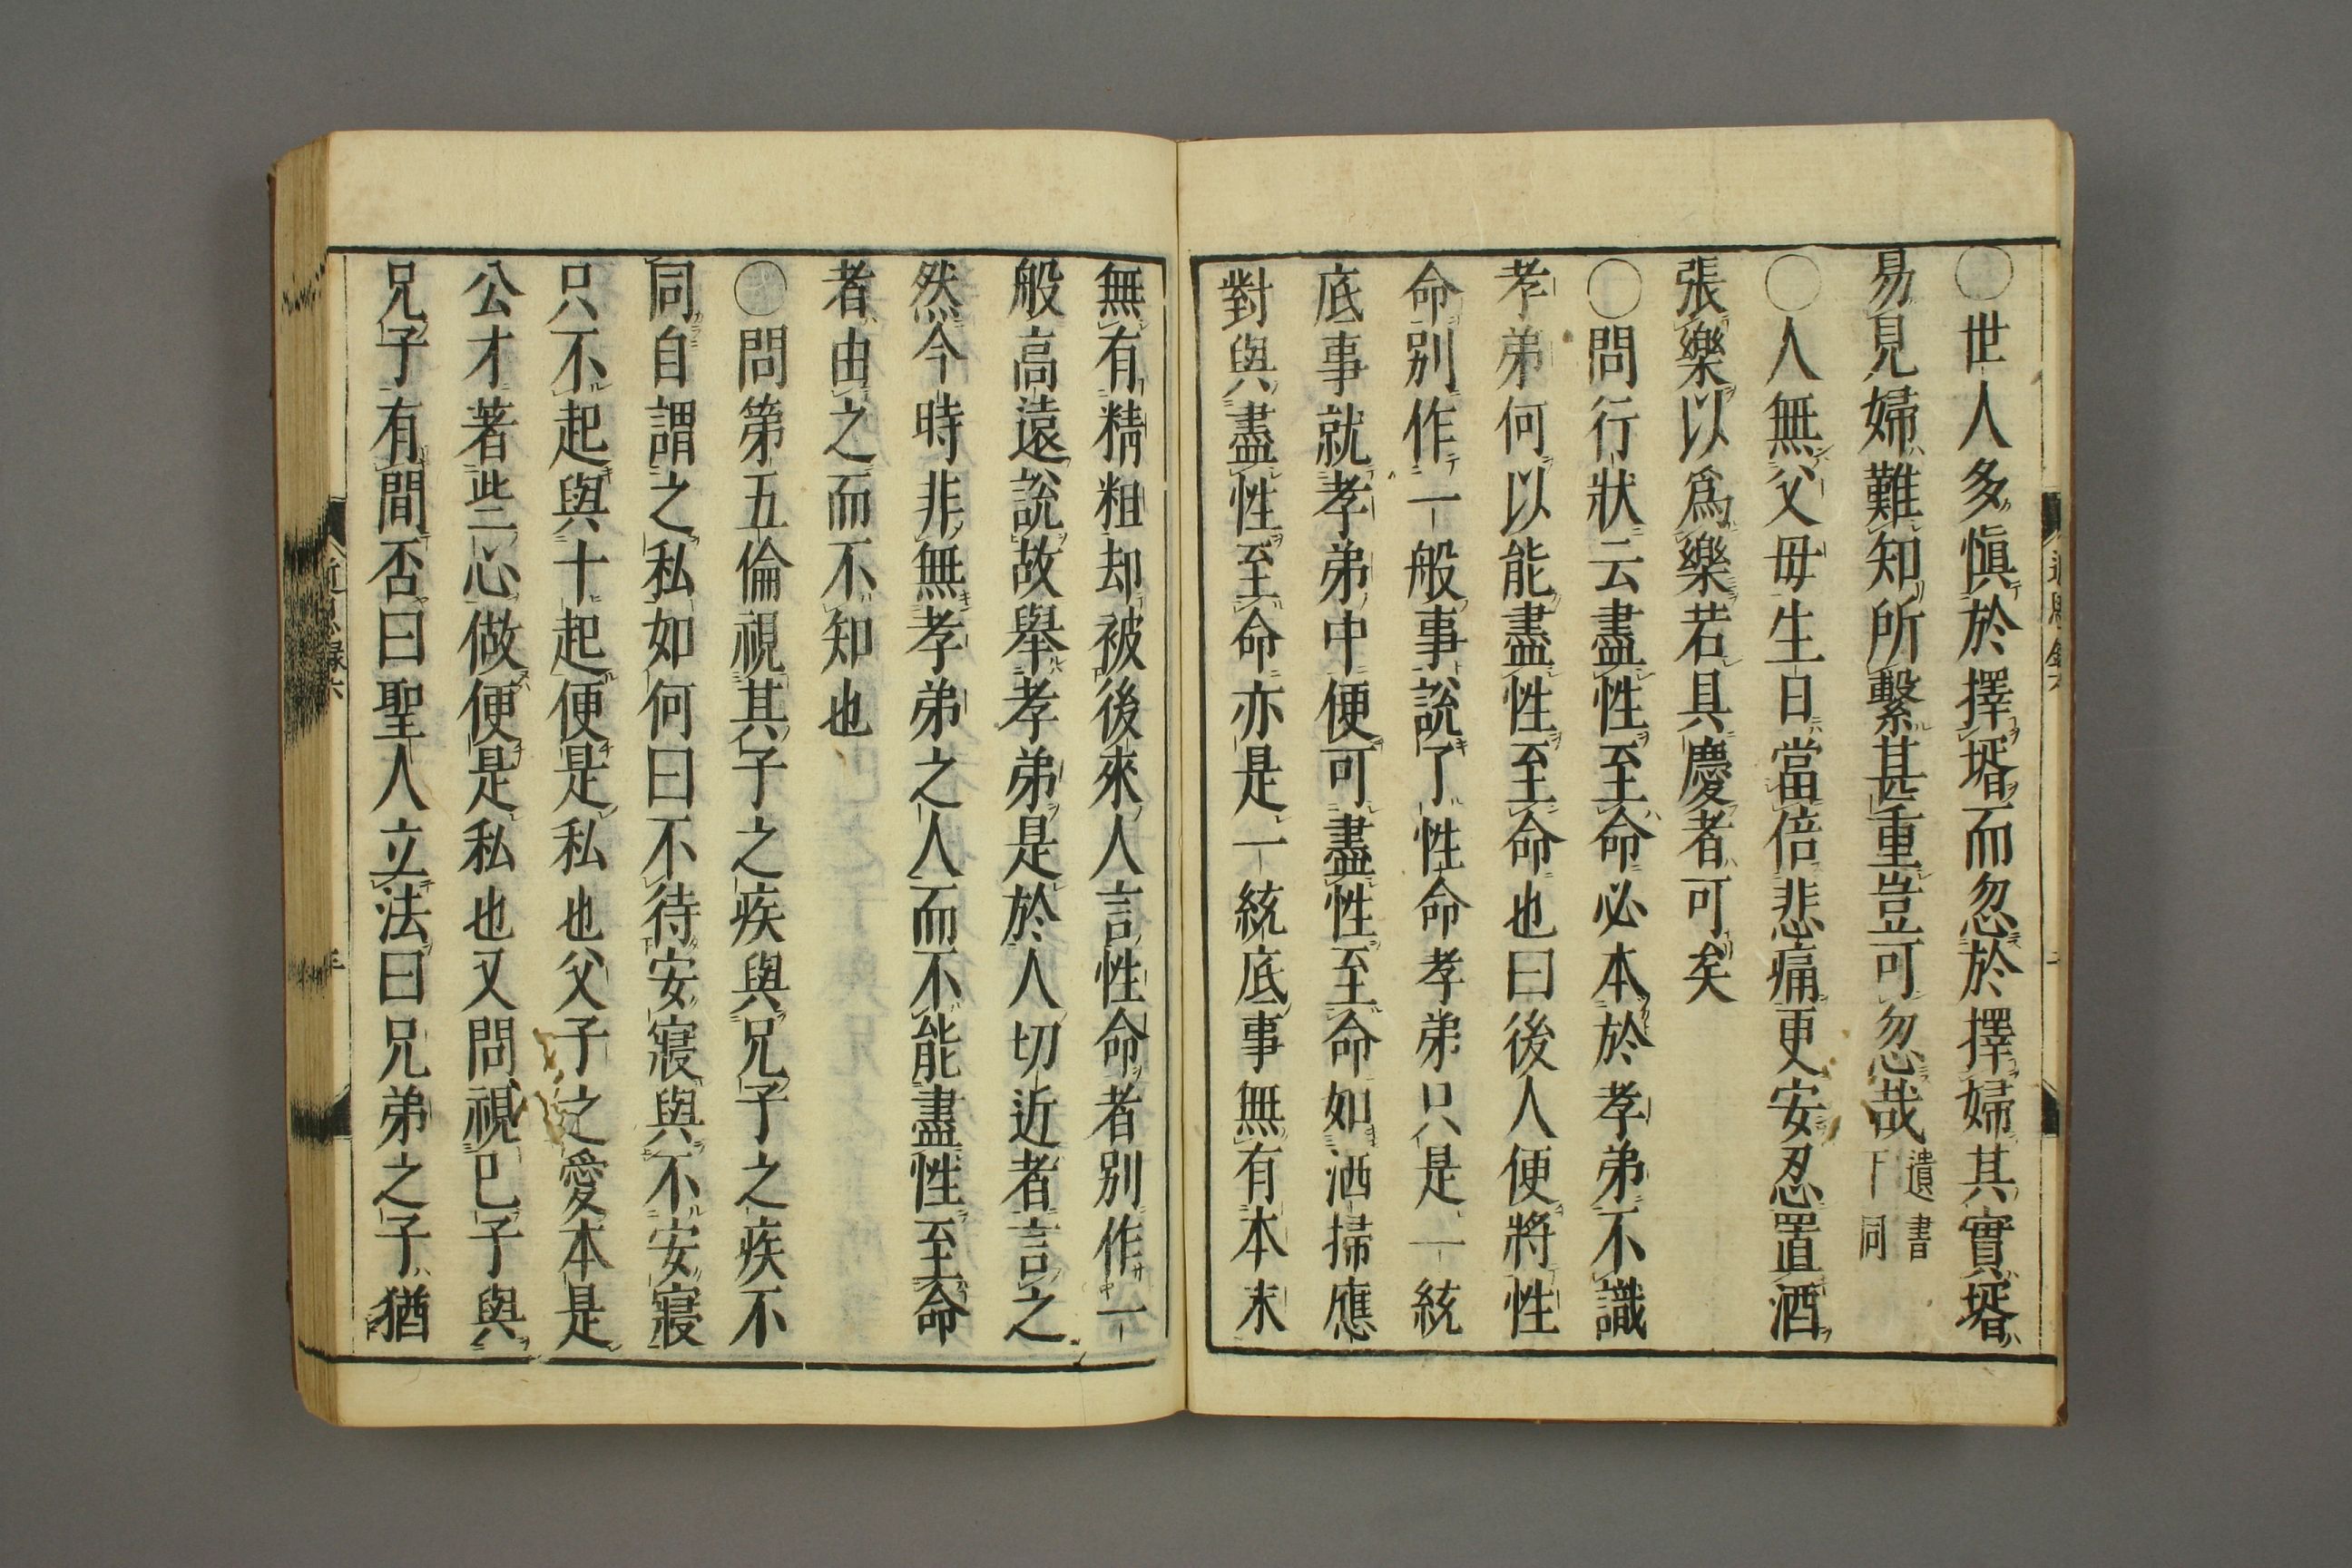 〇世人多愼於擇壻而忽於擇婦其實壻
易見婦難知所繫甚重豈可忽哉遺書下同
〇人無父母生日當倍悲痛更安忍置酒
張樂以爲樂若具慶者可矣
〇問行狀云盡性至命必本於孝弟不識
孝弟何以能盡性至命也曰後人便將性
命別作一般事說了性命孝弟只是一統
底事就孝弟中便可盡性至命如洒掃應
對與盡性至命亦是一統底事無有本末
無有精粗却被後來人言性命者別作一
般高遠說故舉孝弟是於人切近者言之
然今時非無孝弟之人而不能盡性至命
者由之而不知也
〇問第五倫視其子之疾與兄子之疾不
同自謂之私如何曰不待安寢與不安寢
只不起與十起便是私也父子之愛本是
公才著些心做便是私也又問視己子與
兄子有間否曰聖人立法曰兄弟之子猶
近思録六